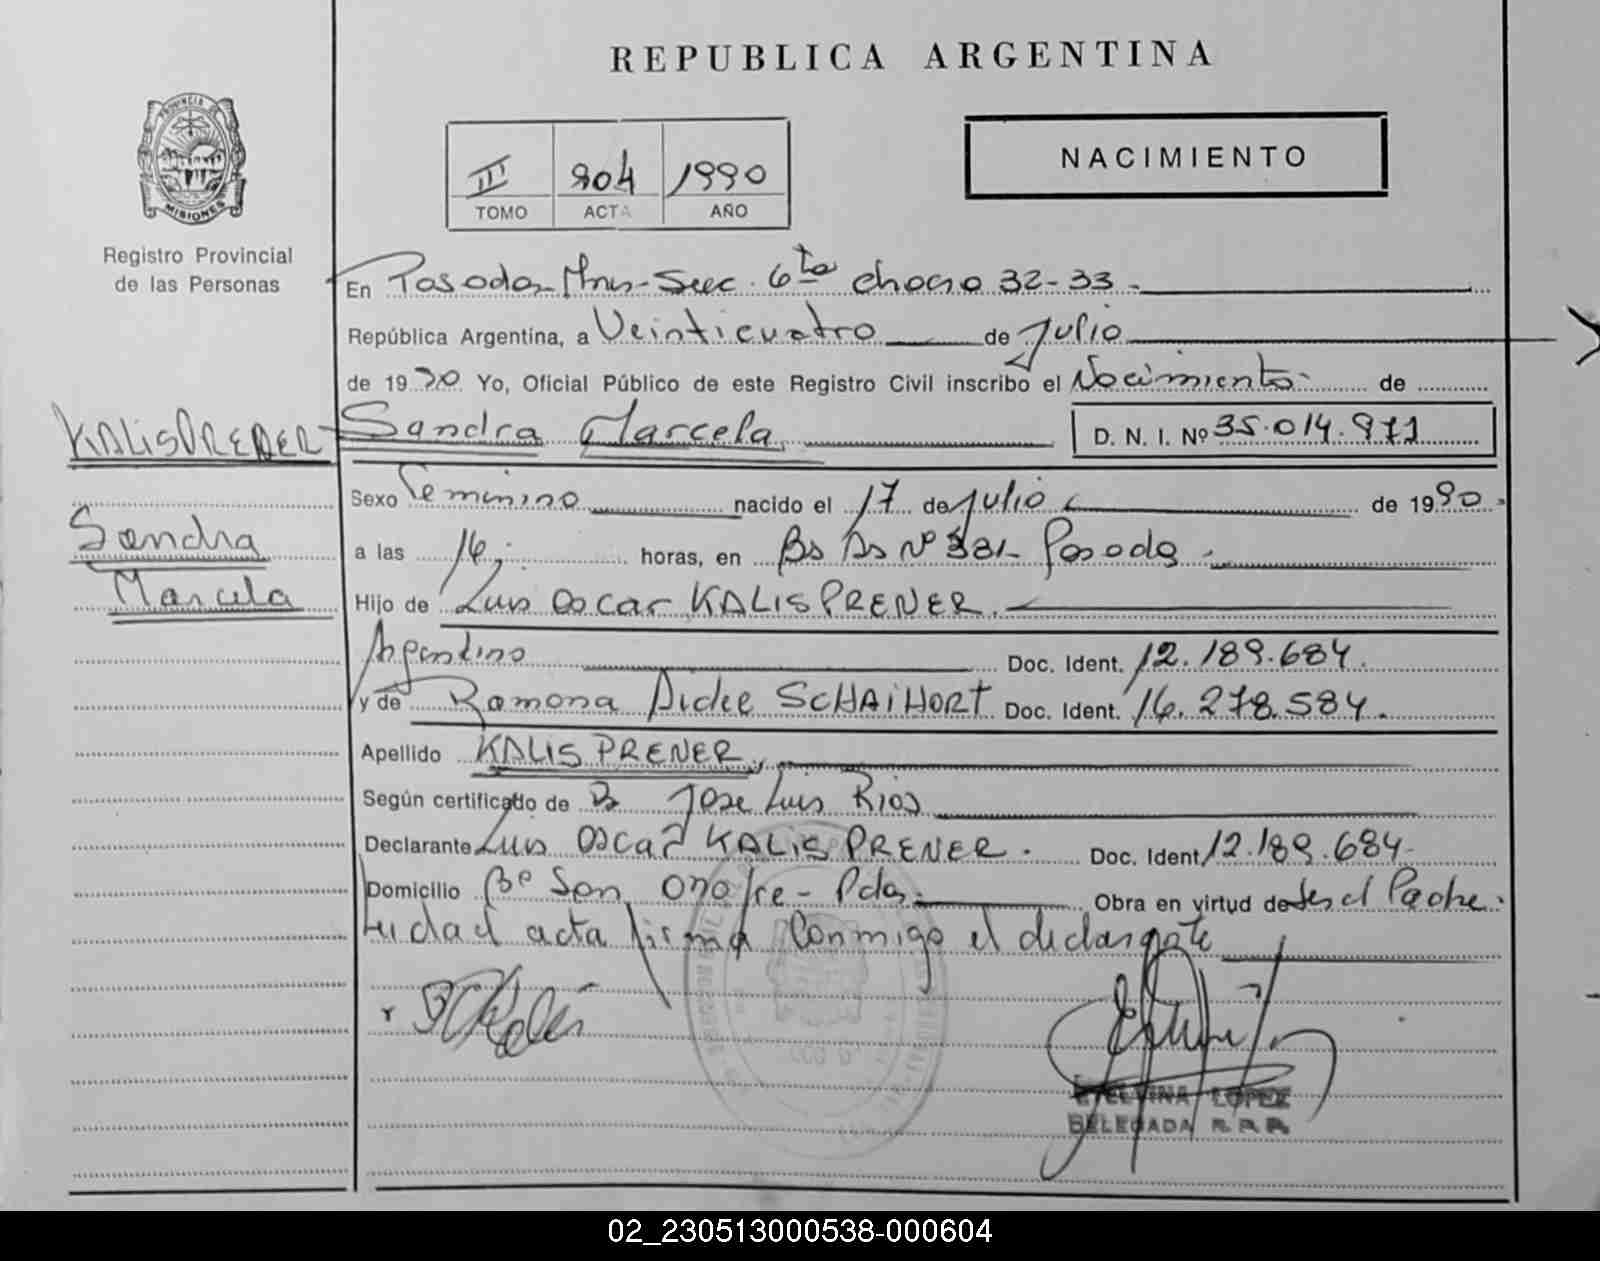 REPUBLICA ARGENTINA
PROVINCIA DE
MISIONES
Registro Provincial
de las Personas
III 904 1990
TOMO ACTA AÑO
NACIMIENTO
En Posadas Mnes - Secc. 6ta chaco 32-33.
República Argentina, a Veinticuatro de Julio
de 1990 Yo, Oficial Público de este Registro Civil inscribo el Nacimiento de
KALISPRENER Sandra Marcela D. N. I. Nº 35.014.971
Sexo Femenino nacido el 17 de julio de 1990
Sandra
a las 16 horas, en Bs As Nº Posadas
Marcela
Hijo de Luis Oscar KALISPRENER
Argentino Doc. Ident. 12.189.684.
y de Ramona SCHAIHORT Doc. Ident. 16.278.584.
Apellido KALISPRENER
Según certificado de Dr Jose Luis Rios
Declarante Luis Oscar KALISPRENER. Doc. Ident. 12.189.684
Domicilio Bº San Onofre - Pdas. Obra en virtud de ser el Padre.
Leida el acta firma Conmigo el declarante
ETELVINA LOPEZ
DELEGADA R.P.P.
02_230513000538-000604